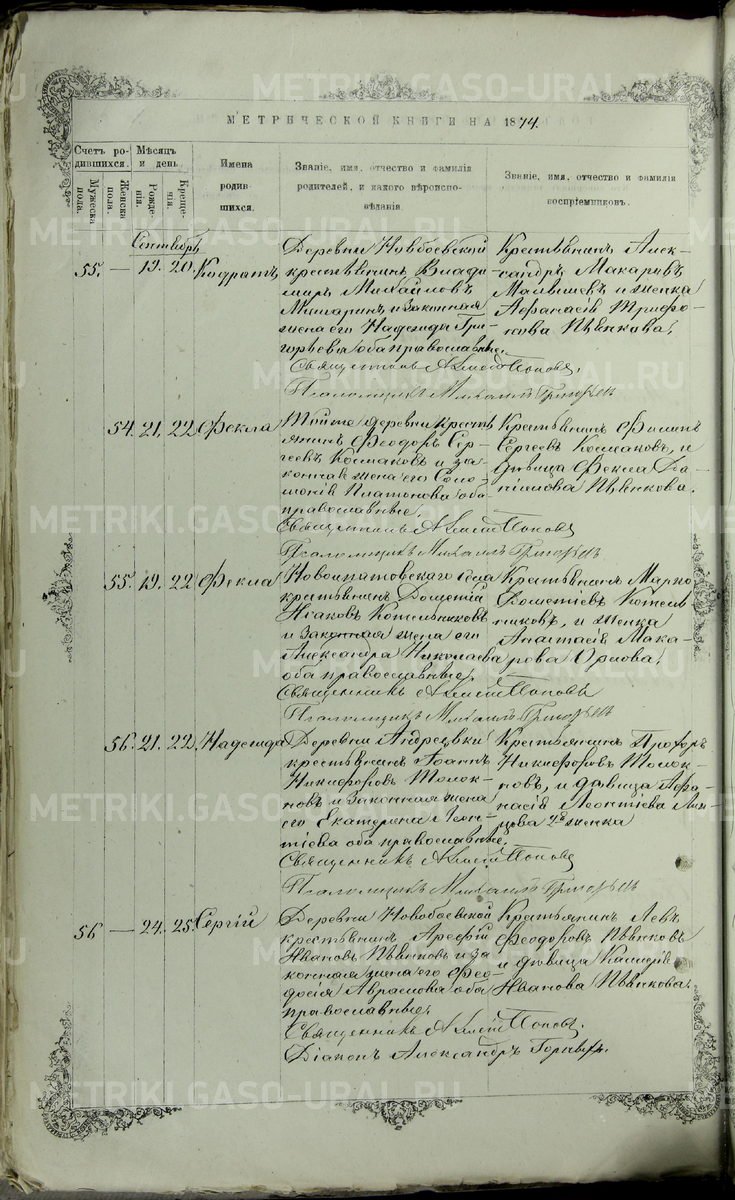 METRIKI.GASO-URAL.RU
МЕТРИЧЕСКОЙ КНИГИ НА 1874.
Счетъ ро-
дившихся.
Мужеска
пола.
Женска
пола.
Мѣсяцъ
и день
Рожде-
нія.
Креще-
нія.
Имена
родив-
шихся.
Званіе, имя, отчество и фамилія
родителей, и какого вѣроиспо-
вѣданія.
Званіе, имя, отчество и фамилія
воспріемниковъ.
Сентябрь
55. — 19. 20. Кодратъ
Деревни Новобоевской
крестьянинъ Влади
миръ Михайловъ
и законная
жена его Надежда Гри-
горьева оба православные.
Крестьянинъ Алек-
сандръ Макаровъ
Малышевъ и женка
Афанасія Трифо-
нова Пьянкова.
Священникъ Алексій Поповъ.
Псаломщикъ Михаилъ Григорьевъ
54. 21. 22. Фекла
Тойже деревни кресть
янинъ Феодоръ Сер-
геевъ Космаковъ и за-
конная жена его Соло-
монія Платонова оба
православные.
Крестьянинъ Филипъ
Сергеевъ Космаковъ, и
дѣвица Фекла Да-
ніилова Пьянкова.
Священникъ Алексій Поповъ
Псаломщикъ Михаилъ Григорьевъ
55. 19. 22. Фекла
Новоипатовскаго села
крестьянинъ Доситей
Исаковъ Котельниковъ
и законная жена его
Александра Николаева
оба православные.
Крестьянинъ Марко
Доситеевъ Котель
никовъ, и женка
Анастасія Мака-
рова Орлова.
Священникъ Алексій Поповъ
Псаломщикъ Михаилъ Григорьевъ
56. 21. 22. Надежда
Деревни Андреевки
крестьянинъ Іоаннъ
Никифоровъ Толок-
новъ и законная жена
его Екатерина Леон-
тіева оба православные.
Крестьянинъ Прохоръ
Никифоровъ Толок-
новъ, и дѣвица Афа-
насія Леонтіева
женка
Священникъ Алексій Поповъ
Псаломщикъ Михаилъ Григорьевъ
56 — 24. 25. Сергій
Деревни Новобоевской
крестьянинъ Арефій
Ивановъ Пьянковъ и за
конная жена его Фео-
досія Аврамова оба
православные.
Крестьянинъ Левъ
Феодоровъ Пьянковъ
и дѣвица
Иванова Пьянкова.
Священникъ Алексій Поповъ.
Діаконъ Александръ